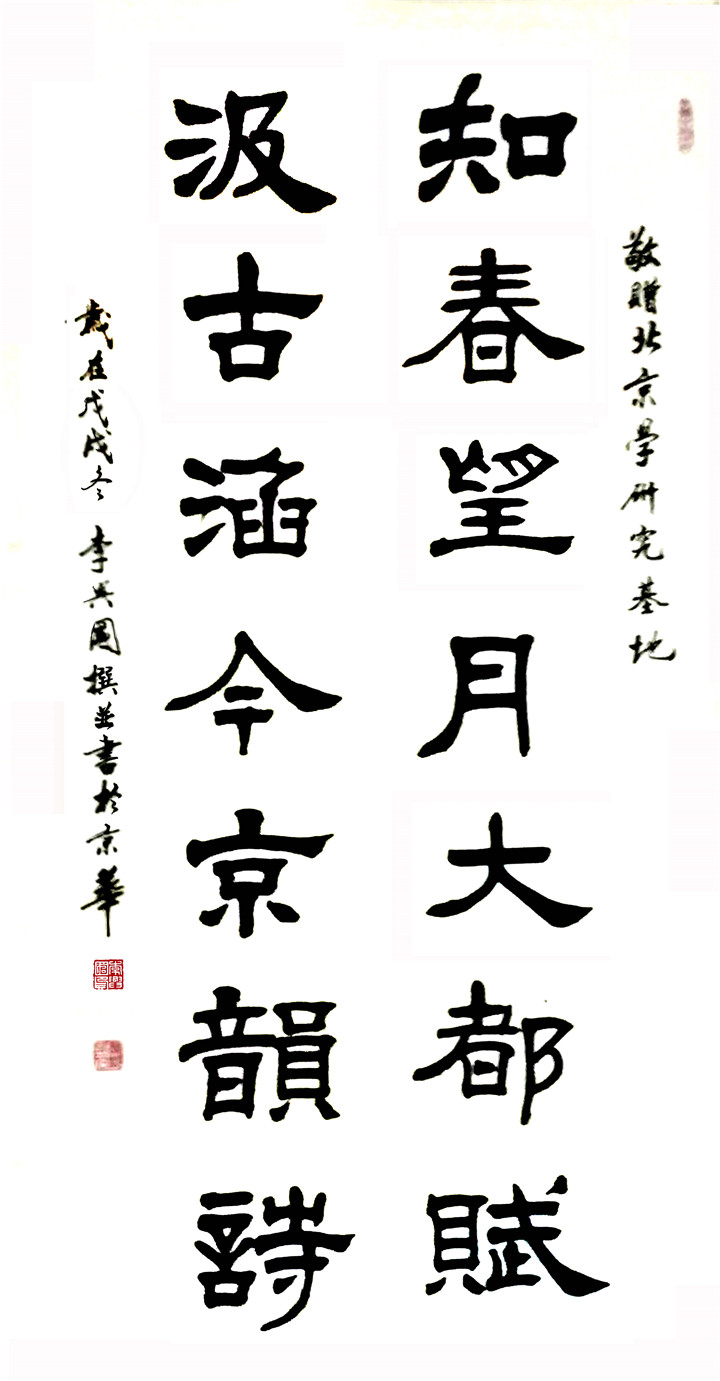 敬贈北京學研究基地
知春望月大都賦
汲古涵今京韻詩
歲在戊戌冬 李興國撰並書於京華